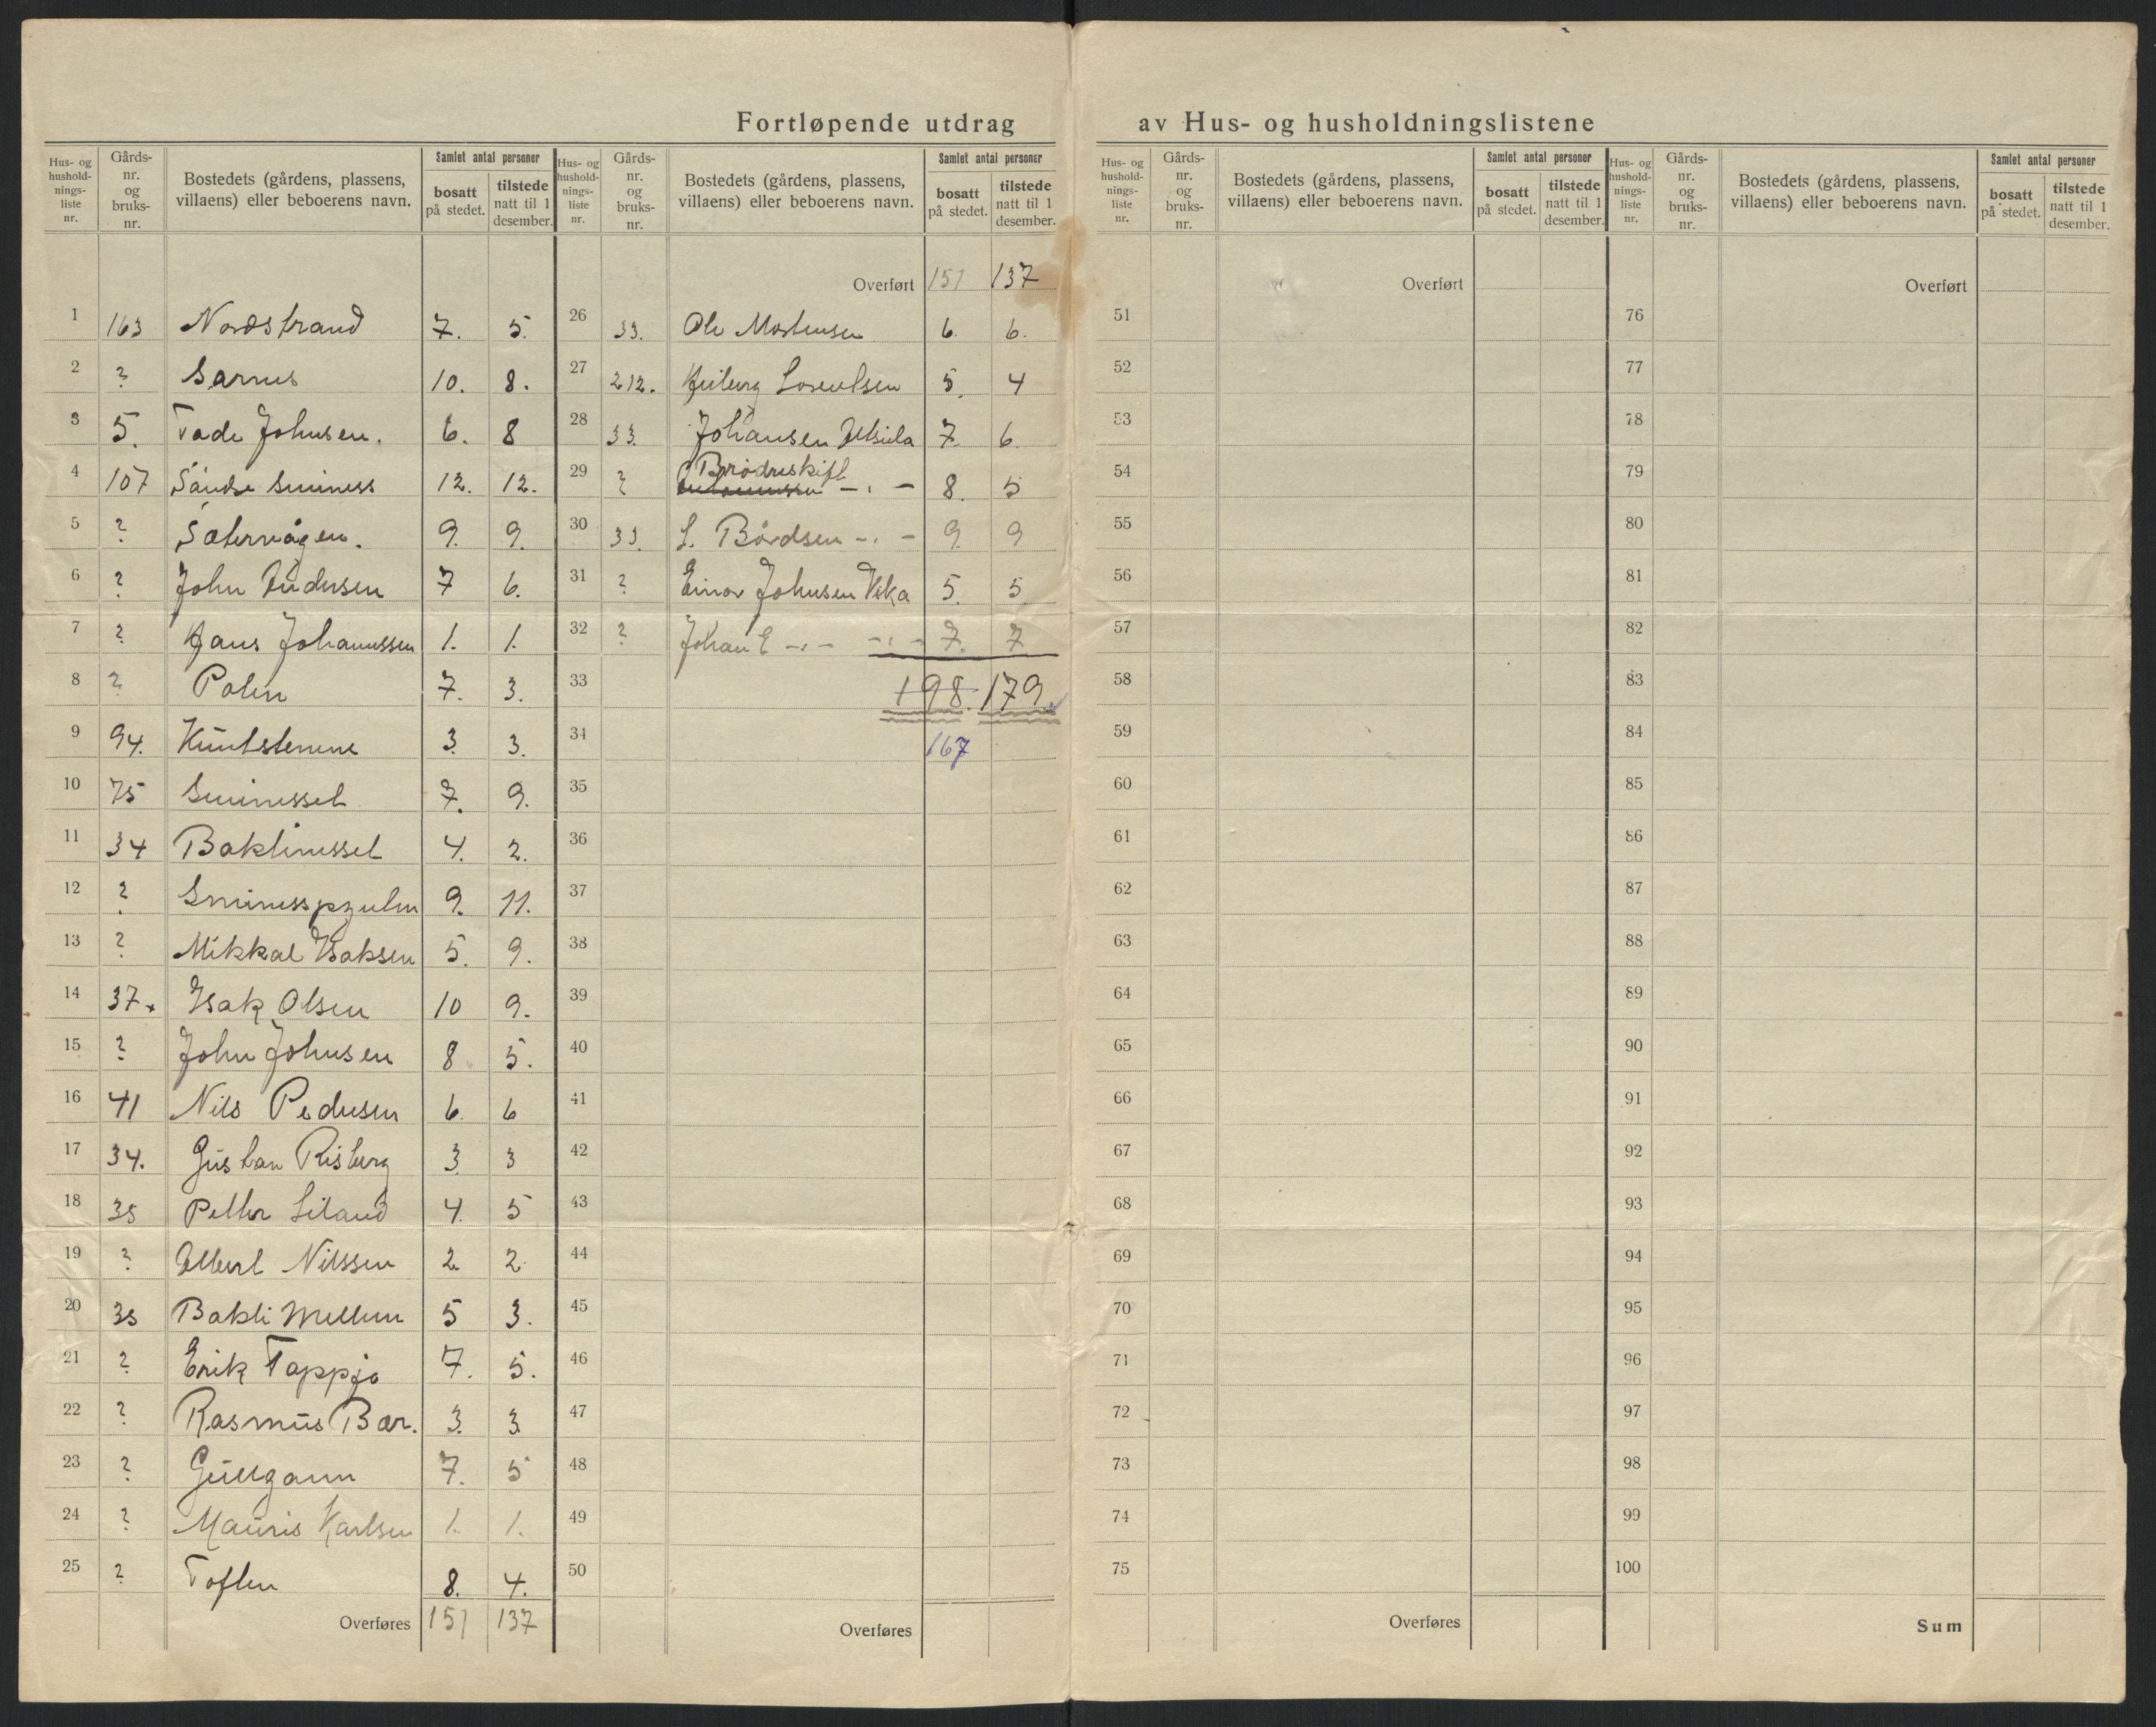 Fortløpende utdrag av Hus- og husholdningslistene
Hus- og hushold-nings-liste nr. | Gårds-nr. og bruks-nr. | Bostedets (gårdens, plassens, villaens) eller beboerens navn. | Samlet antal personer | bosatt på stedet. | tilstede natt til 1 desember.
1 163 Nordstrand 7. 5.
2 ? Sarnes 10. 8.
3 5. Tade Johnsen. 6. 8
4 107 12. 12.
5 ? Sætervågen. 9. 9.
6 ? John Andersen 7 6.
7 ? Hans Johannssen 1. 1.
8 ? Polen 7. 3.
9 94. 3. 3.
10 75 7. 9.
11 34 4. 2.
12 ? 9. 11.
13 ? Mikkal Isaksen 5. 9.
14 37. Isak Olsen 10 9.
15 ? John Johnsen 8 5.
16 41 Nils Pedersen 6. 6
17 34. Gustav Risberg 3. 3
18 35 Petter Liland 4. 5
19 ? Albert Nilssen 2. 2.
20 35 Bakli Mellem 5 3.
21 ? Erik Tappjo 7. 5.
22 ? Rasmus Bær. 3. 3
23 ? Gullgam 7. 5
24 ? Mauris Karlsen 1. 1.
25 ? Toften 8. 4.
Overføres 151 137
Hus- og hushold-nings-liste nr. | Gårds-nr. og bruks-nr. | Bostedets (gårdens, plassens, villaens) eller beboerens navn. | Samlet antal personer | bosatt på stedet. | tilstede natt til 1 desember.
Overført 151 137
26 33. Ole Mortensen 6. 6.
27 212. Lorentsen 5. 4
28 33. Johansen 7. 6.
29 ? Brødreskift -"- 8. 5
30 33. L. Bårdsen -"- 9. 9
31 ? Einar Johnsen Vika 5. 5
32 ? Johan E -"- -"- 7. 7
33 198. 179.
34 167
35
36
37
38
39
40
41
42
43
44
45
46
47
48
49
50
Overføres
Hus- og hushold-nings-liste nr. | Gårds-nr. og bruks-nr. | Bostedets (gårdens, plassens, villaens) eller beboerens navn. | Samlet antal personer | bosatt på stedet. | tilstede natt til 1 desember.
Overført
51
52
53
54
55
56
57
58
59
60
61
62
63
64
65
66
67
68
69
70
71
72
73
74
75
Overføres
Hus- og hushold-nings-liste nr. | Gårds-nr. og bruks-nr. | Bostedets (gårdens, plassens, villaens) eller beboerens navn. | Samlet antal personer | bosatt på stedet. | tilstede natt til 1 desember.
Overført
76
77
78
79
80
81
82
83
84
85
86
87
88
89
90
91
92
93
94
95
96
97
98
99
100
Sum